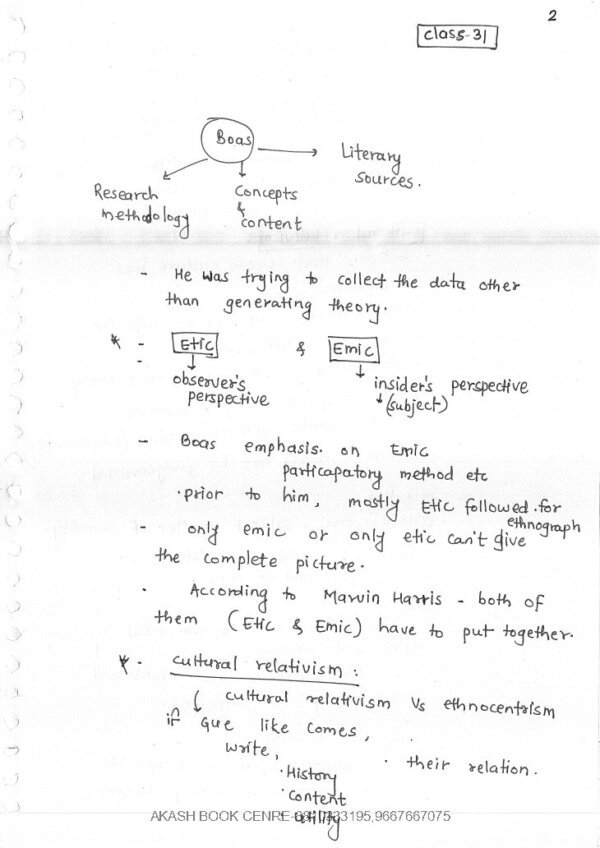 2
class-31
Boas
Literary
sources.
Research
methodology
Concepts
&
content
- He was trying to collect the data other
than generating theory.
* - Etic & Emic
observer's
perspective
insider's perspective
(subject)
- Boas emphasis. on Emic
particapatory method etc
. prior to him, mostly Etic followed. for
ethnograph
- only emic or only etic can't give
the complete picture.
. According to Marvin Harris - both of
them (Etic & Emic) have to put together.
* - cultural relativism :
( cultural relativism Vs ethnocentrism
if Que like comes,
write,
. their relation.
. History
. Content
. utility
AKASH BOOK CENRE 333195,9667667075